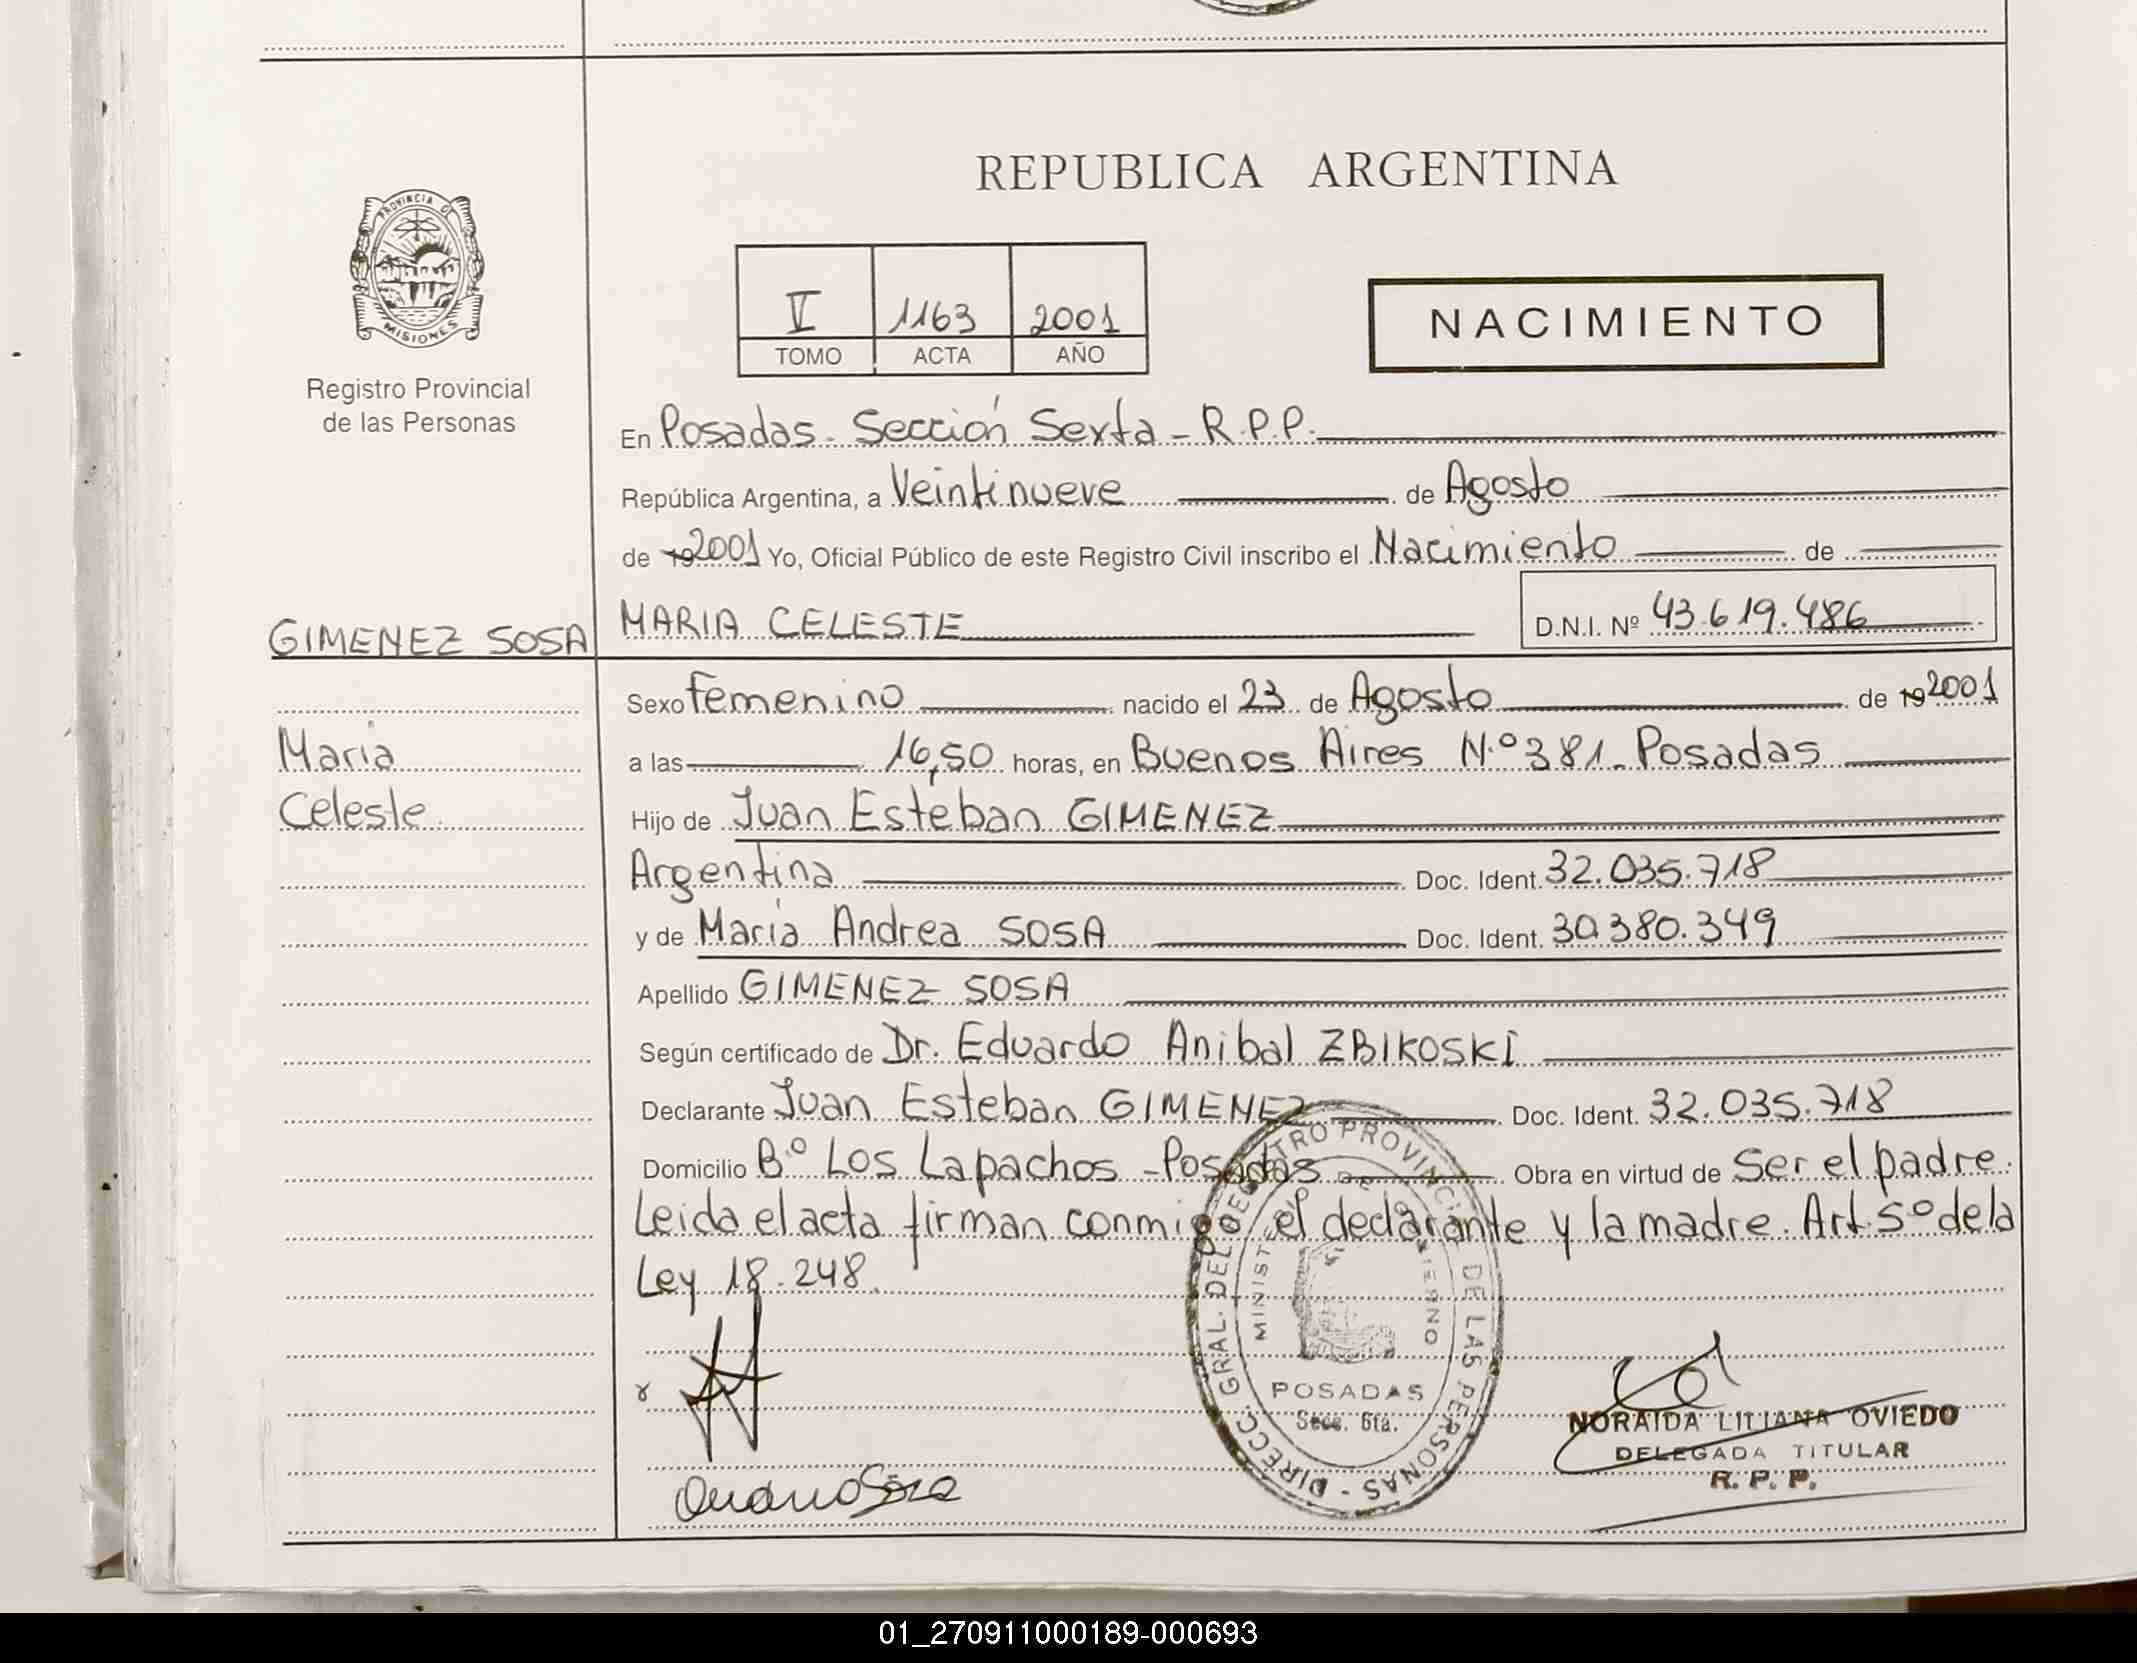 REPUBLICA ARGENTINA
PROVINCIA DE
MISIONES
Registro Provincial
de las Personas
V 1163 2001
TOMO ACTA AÑO
NACIMIENTO
En Posadas - Sección Sexta - R.P.P.
República Argentina, a Veintinueve de Agosto
de 192001 Yo, Oficial Público de este Registro Civil inscribo el Nacimiento de
GIMENEZ SOSA
MARIA CELESTE D.N.I. Nº 43.619.486
Sexo Femenino nacido el 23 de Agosto de 192001
Maria
a las 16,50 horas, en Buenos Aires N.º 381 - Posadas
Celeste
Hijo de Juan Esteban GIMENEZ
Argentina Doc. Ident. 32.035.718
y de María Andrea SOSA Doc. Ident. 30.380.349
Apellido GIMENEZ SOSA
Según certificado de Dr. Eduardo Anibal ZBIKOSKI
Declarante Juan Esteban GIMENEZ Doc. Ident. 32.035.718
Domicilio B.º Los Lapachos - Posadas Obra en virtud de Ser el padre.
Leida el acta firman conmigo el declarante y la madre. Art. 5º de la
Ley 18.248.
DIRECC. GRAL. DEL REGISTRO PROVINCIAL DE LAS PERSONAS
MINISTERIO DE GOBIERNO
POSADAS
Secc. 6ta.
NORAIDA LILIANA OVIEDO
DELEGADA TITULAR
R. P. P.
01_270911000189-000693